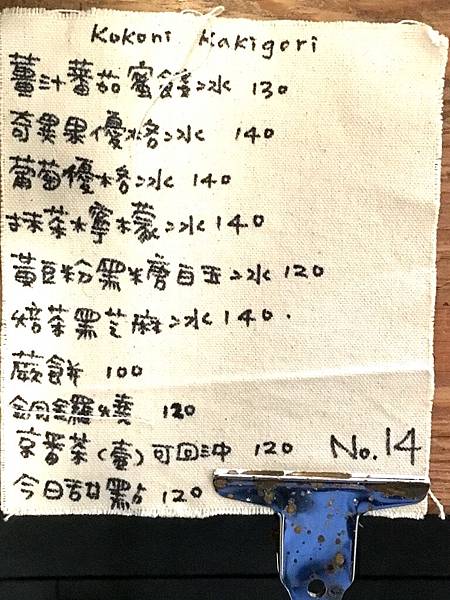 Kokoni Kakigori
薑汁蕃茄蜜餞冰 130
奇異果優格冰 140
葡萄優格冰 140
抹茶檸檬冰 140
黃豆粉黑糖白玉冰 120
焙茶黑芝麻冰 140.
蕨餅 100
銅鑼燒 120
京番茶(壺)可回沖 120
No.14
今日甜點 120